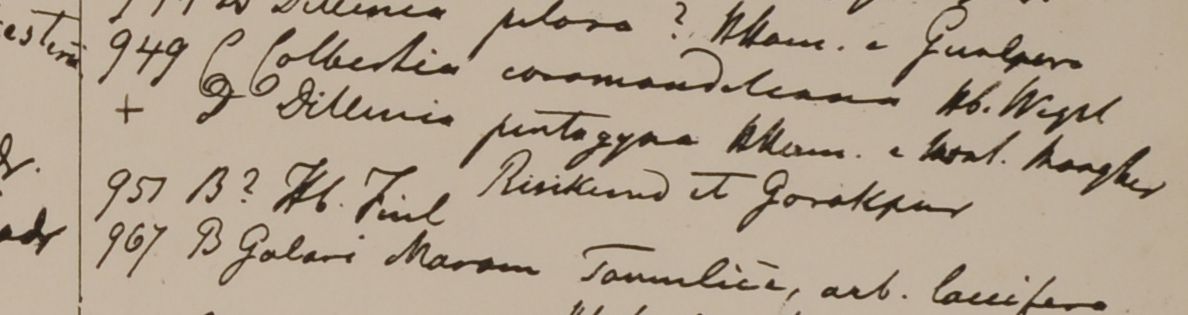 Dillenia pilosa? HHam. e Gualpara
949 C Colbertia coromandeliana Hb. Wight
+ D Dillenia pentagyna HHam. e Mont. Mongher
Risikund et Gorakpur
951 B? Hb. Finl
967 B Golari Maram Tamulice, arb. laccifera